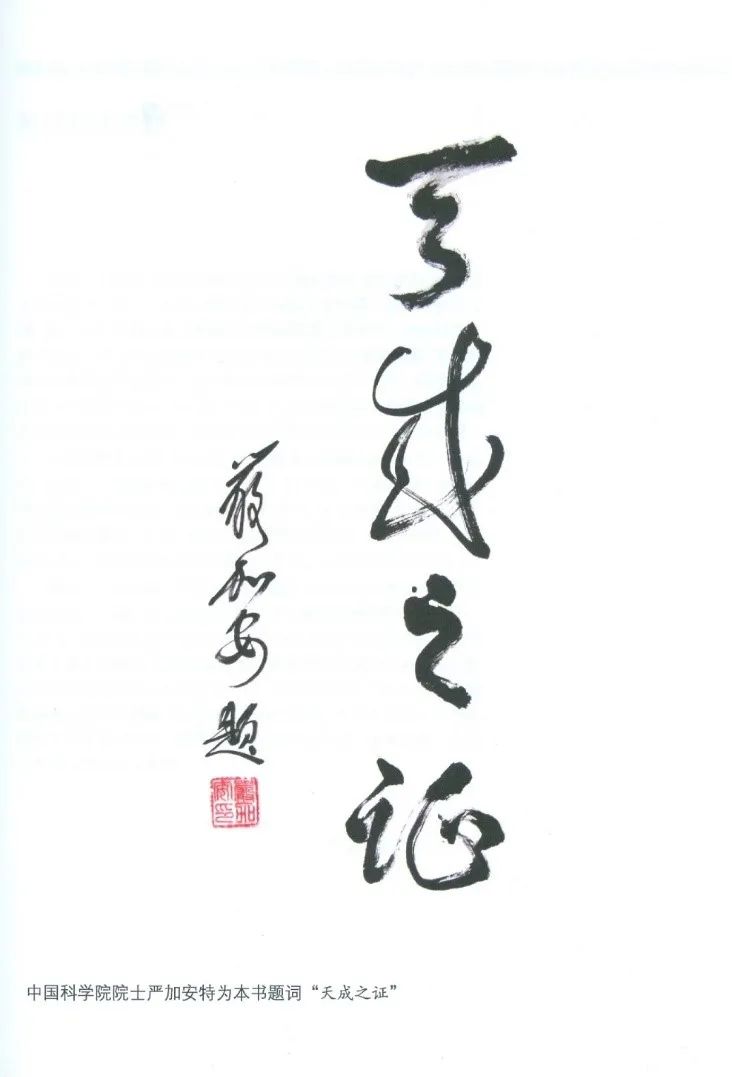 天成之证
严加安题
嚴加安印
中国科学院院士严加安特为本书题词“天成之证”